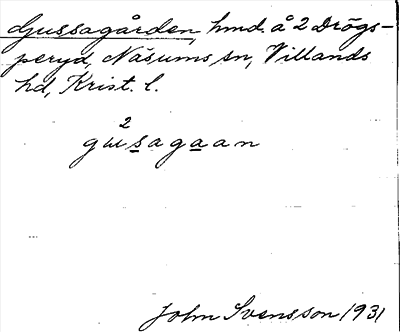 Gussagården, hmd. å 2 Drögs-
peryd, Näsums sn, Villands
hd, Krist. l.
2
gɯsagaan
John Svensson 1931